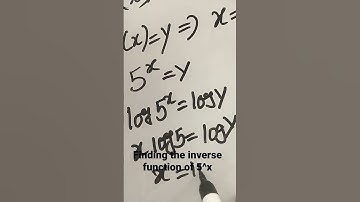 (x)=y => x=
5^x=y
log 5^x=logy
x log5=logy
Finding the inverse
function of 5^x
x =